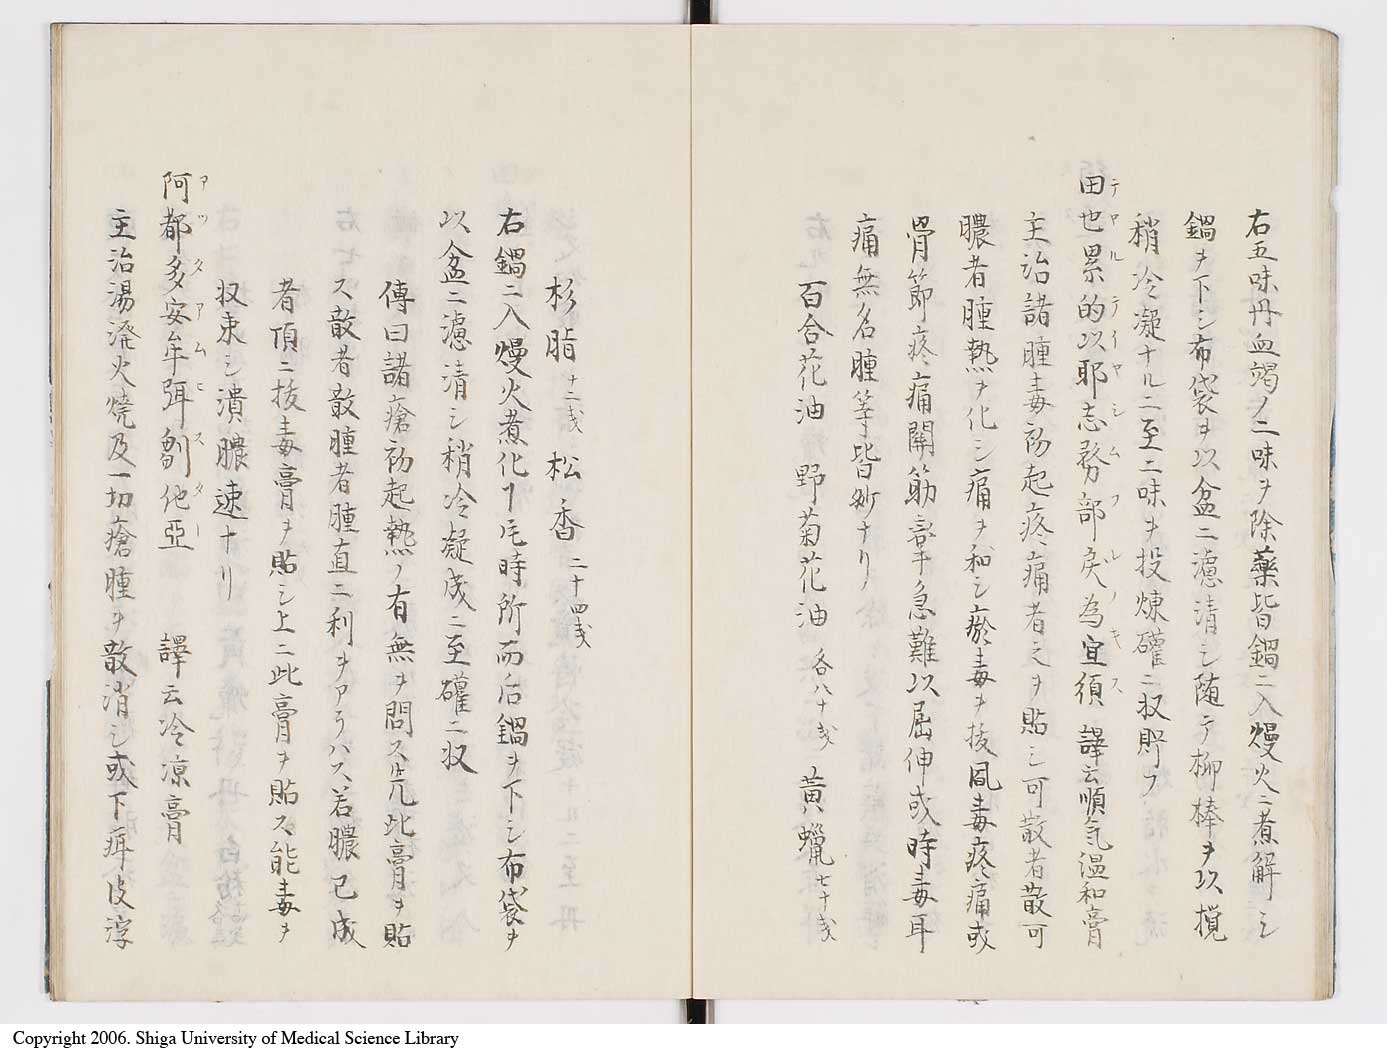 右五味丹血竭ノ二味ヲ除藥皆鍋ニ入熳火ニ煮解シ
鍋ヲ下シ布袋ヲ以盆ニ濾清シ随テ柳棒ヲ以攪
稍冷凝ナルニ至二味ヲ投煉礶ニ収貯フ
田也累的以耶志務部戻為宜須 譯云順氣温和膏
テヤルテイヤシムフルノキス
主治諸腫毒初起疼痛者之ヲ貼シ可散者散可
膿者腫熱ヲ化シ痛ヲ和シ瘀毒ヲ抜風毒疼痛或
骨節疼痛關筋拏急難以屈伸或時毒耳
痛無名腫等皆妙ナリ
百合花油 野菊花油 各八十戔 黄蠟 七十戔
杉脂 十二戔 松香 二十四戔
右鍋ニ入熳火煮化ヿ乇時所而后鍋ヲ下シ布袋ヲ
以盆ニ濾清シ稍冷凝成ニ至礶ニ収
傳曰諸瘡初起熱ノ有無ヲ問ス凢此膏ヲ貼
ス散者散腫者腫直ニ利ヲアラハス若膿已成
者頂ニ抜毒膏ヲ貼シ上ニ此膏ヲ貼ス能毒ヲ
収束シ潰膿速ナリ
阿都多安牟弭芻他亞 譯云冷凉膏
アツタアムヒスター
主治湯溌火焼及一切瘡腫ヲ散消シ或下疳皮淳